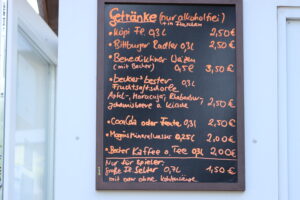 Getränke (nur alkoholfrei)
in Flaschen
• Köpi Fe 0,3 l 2,50 €
• Bittburger Radler 0,3 l 2,50 €
• Benediktiner Weizen
(mit Becher) 0,5 l 3,50 €
• becker's bester 0,3 l
Fruchtsaftschorle
Apfel-, Maracuja, Rhabarber,
Johannisbeere o. Kirsche 2,50 €
• Coca Cola oder Fanta 0,3 l 2,50 €
• Mineralwasser 0,25 l 2,00 €
• Becher Kaffee o. Tee 0,3 l 2,00 €
Nur für Spieler:
große Fl. Selter 0,7 l 1,50 €
mit oder ohne Kohlensäure